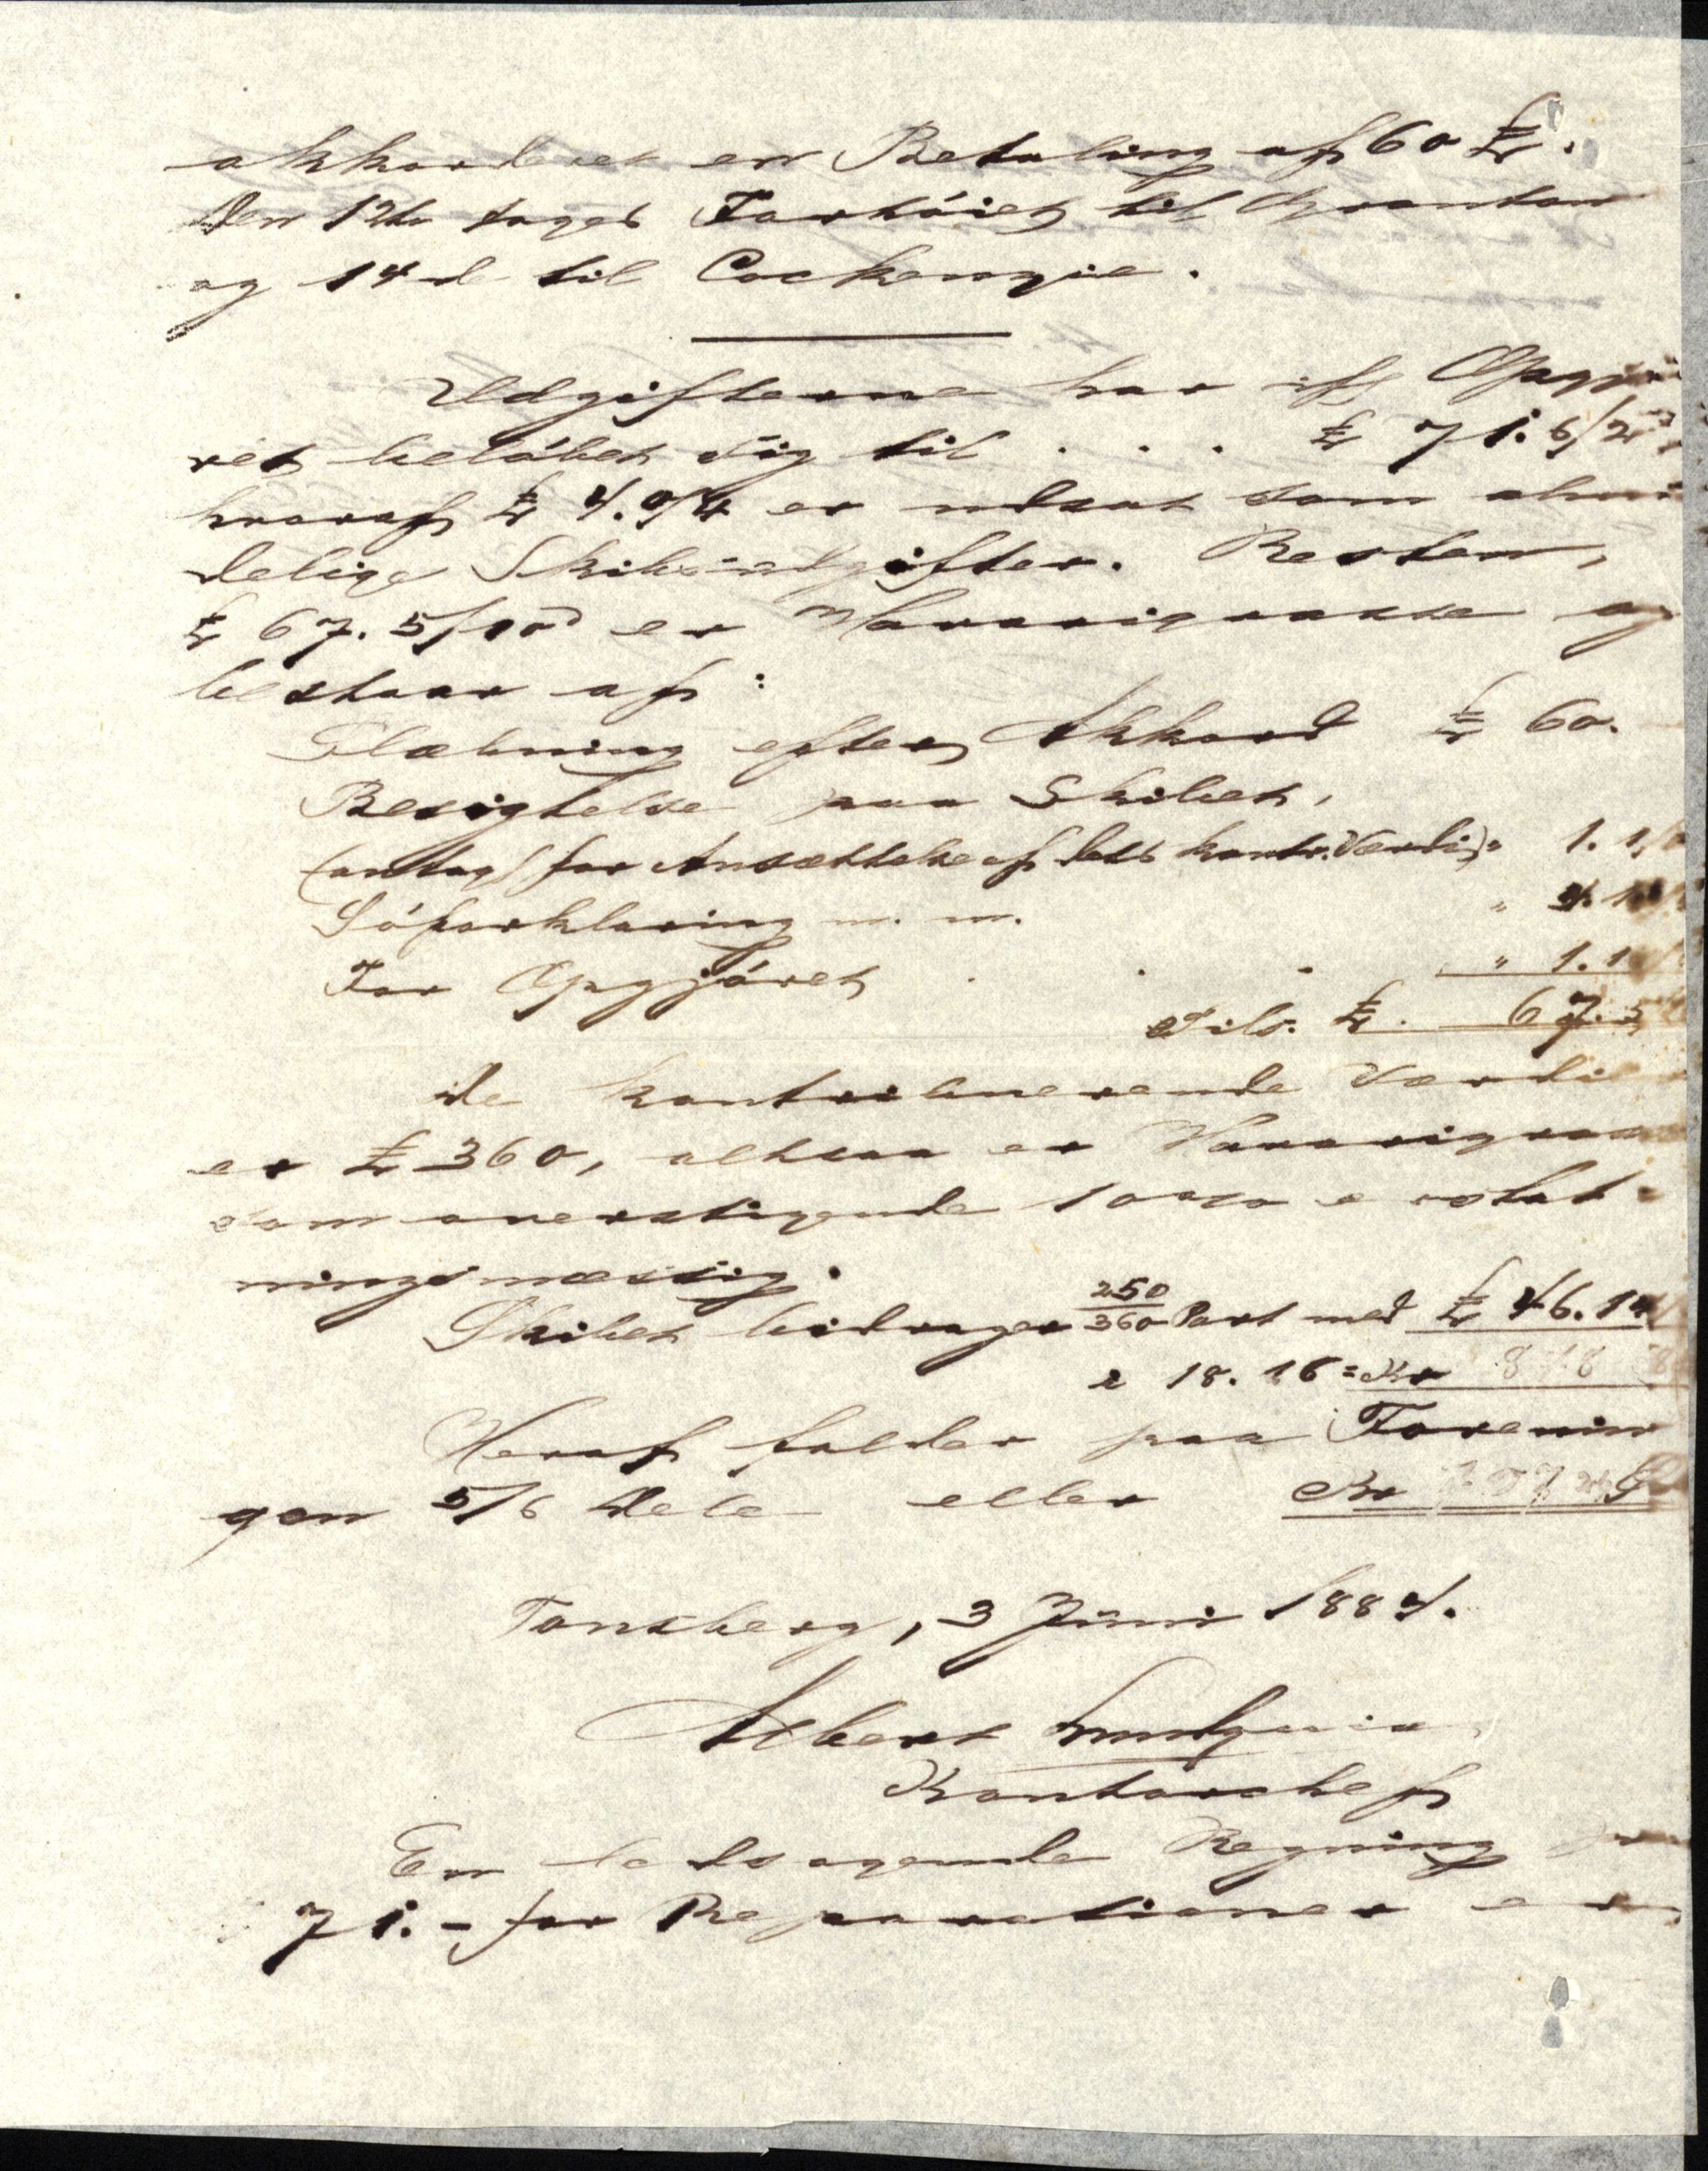 akkorderet en Betaling af 60 £.
Den 12te toges Fartöiet til Granton
og 14de til Cockenzie.
Udgifterne har iflg Opgjö-
ret belöbet sig til . . . £ 71. 6/2
hvoraf £ 4. 0/4 er udsat som almin
delige Skibsudgifter. Resten,
£ 67. 5/10d er Havarigrosse og
bestaar af:
Slæbning efter Akkord £ 60.
Besigtelse paa Skibet,
(antagl for Ansættelse af dets kontr. Værdi) " 1. 1/0
Söforklaring m. m. "
For Opgjöret . . . " 1. 1
Tils. £. 67. 5
De kontribuerende Værdi
er £ 360, altsaa er Havarigros
som overstigende 10 % erstat-
ningsmæssig.
Skibet bidrager 250/360 Part med £ 46. 14
à 18. 16 = Kr 848
Heraf falder paa Forenin
gen 5/6 Dele eller Kr
Tønsberg, 3 Juni 1884.
Albert
Kontorchef
En ledsagende Regning
71. - for Reparationer er